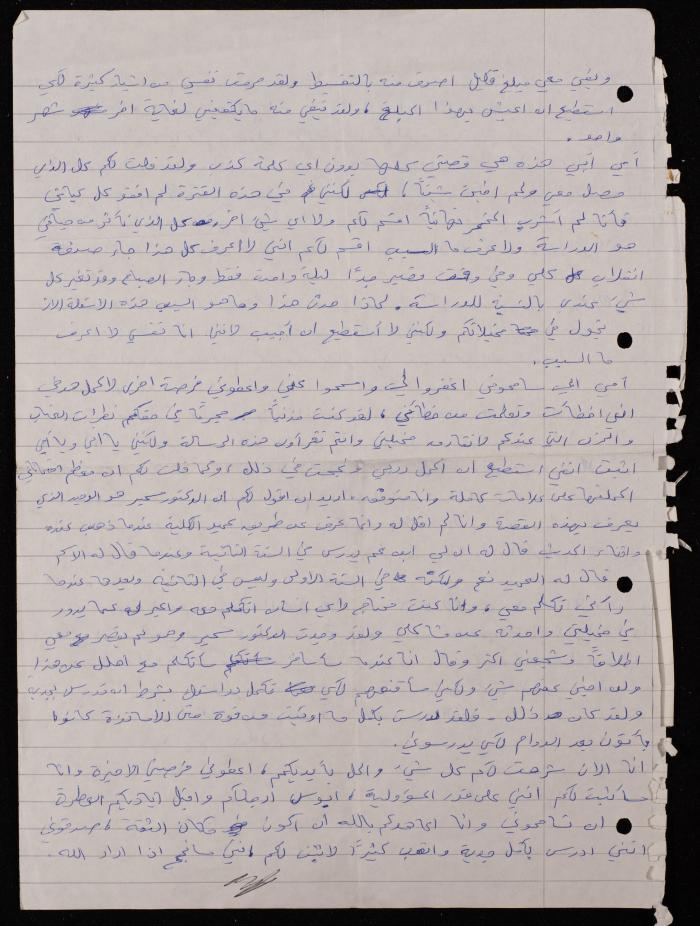 وبقي معي مبلغ قليل اصرف منه بالتقسيط ولقد حرمت نفسي من اشياء كثيرة لكي
استطيع ان اعيش بهذا المبلغ، ولقد تبقي منه ما يكفيني لغاية اخر شهر
واحد.
أمي أبي هذه هي قصتي بكاملها بدون اي كلمة كذب ولقد قلت لكم كل الذي
حصل معي ولم اخبئ شيئاً، لكنني في هذه الفترة لم افقد كل حياتي
فأنا لم أشرب الخمر نهائياً اقسم لكم ولا اي شيء اخر وكل الذي تأثر من حياتي
هو الدراسة ولا اعرف ما السبب اقسم لكم انني لا اعرف كل هذا جاء صدفة
انقلاب كلي وفي وقت قصير جداً ليلة وامدت فقط وجاء الصباح وقد تغير كل
شيء عندي بالنسبة للدراسة. لماذا حدث هذا وما هو السبب هذه الاسئلة الان
تجول في مخيلاتكم ولكنني لا أستطيع ان أجيب لانني انا نفسي لا اعرف
ما السبب.
أمي ابي سامحوني اغفروا لي واسمحوا عني واعطوني فرصة اخرى لاكمل هدفي
انني اخطأت وتعلمت من خطأي، لقد كنت مذنباً في حقكم نظرات العتاب
والحزن التي عندكم لا تفارق مخيلتي وانتم تقرأون هذه الرسالة ولكنني يا ابي ويا أمي
اثبت انني استطيع ان اكمل درسي ونجحت في ذلك، وكما قلت لكم ان معظم امتحاناتي
اكملتها على علامات كاملة وانا متوقعه، اريد ان اقول لكم ان الدكتور سمير هو الوحيد الذي
يعرف بهذه القصة وانا لم اقل له وانما عرف عن طريق عميد الكلية عندما ذهب عنده
واثناء الحديث قال له ان لي ابن عم يدرس في السنة الثانية وعندما قال له الاسم
قال له العميد نعم ولكنه في السنة الاولى وليس في الثانية وبعدها عندما
رآني تكلم معي، وانا كنت محتاج لاي انسان اتكلم معه واعبر له عما يدور
في مخيلتي واحدثه عن مشاكلي ولقد وجدت الدكتور سمير وهو لم يقصر معي
اطلاقاً وشجعني اكثر وقال انا عندما سأسافر سأتكلم مع اهلك عن هذا
ولن اخبئ عنهم شيء ولكني سأقنعهم لكي تكمل دراستك بشرط ان تدرس بجد
ولقد كان ذلك. فلقد درست بكل ما اوتيت من قوة حتى الأساتذة كانوا
يأتون بعد الدوام لكي يدرسوني.
انا الان شرحت لكم كل شيء والحل بأيديكم، اعطوني فرصتي الاخيرة وانا
سأثبت لكم انني على قدر المسؤولية، ابوس ارجلكم واقبل اياديكم العطرة
ان تسامحوني وانا اعاهدكم بالله أن أكون في مكان الثقة، صدقوني
انني ادرس بكل جدية واتعب كثيراً لاثبت لكم انني سأنجح اذا اراد الله.